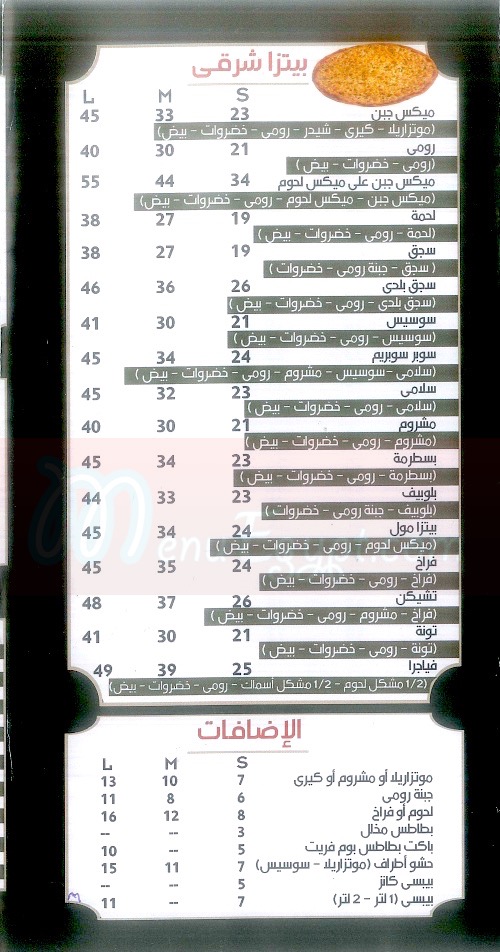 بيتزا شرقى
S M L
ميكس جبن 23 33 45
(موتزاريلا - كيرى - شيدر - رومى - خضروات - بيض)
رومى 21 30 40
(رومى - خضروات - بيض)
ميكس جبن على ميكس لحوم 34 44 55
(ميكس جبن - ميكس لحوم - رومى - خضروات - بيض)
لحمة 19 27 38
(لحمة - رومى - خضروات - بيض)
سجق 19 27 38
(سجق - جبنة رومى - خضروات)
سجق بلدى 26 36 46
(سجق بلدى - رومى - خضروات - بيض)
سوسيس 21 30 41
(سوسيس - رومى - خضروات - بيض)
سوبر سوبريم 24 34 45
(سلامى - سوسيس - مشروم - رومى - خضروات - بيض)
سلامى 23 32 45
(سلامى - رومى - خضروات - بيض)
مشروم 21 30 40
(مشروم - رومى - خضروات - بيض)
بسطرمة 23 34 45
(بسطرمة - رومى - خضروات - بيض)
بلوبيف 23 33 44
(بلوبيف - جبنة رومى - خضروات)
بيتزا مول 24 34 45
(ميكس لحوم - رومى - خضروات - بيض)
فراخ 24 35 45
(فراخ - رومى - خضروات - بيض)
تشيكن 26 37 48
(فراخ - مشروم - رومى - خضروات - بيض)
تونة 21 30 41
(تونة - رومى - خضروات - بيض)
فياجرا 25 39 49
(1/2 مشكل لحوم - 1/2 مشكل أسماك - رومى - خضروات - بيض)
الإضافات
S M L
موتزاريلا أو مشروم أو كيرى 7 10 13
جبنة رومى 6 8 11
لحوم أو فراخ 8 12 16
بطاطس مخلل 3 -- --
باكت بطاطس بوم فريت 5 -- 10
حشو أطراف (موتزاريلا - سوسيس) 7 11 15
بيبسى كانز 5 -- --
بيبسى (1 لتر - 2 لتر) 7 -- 11